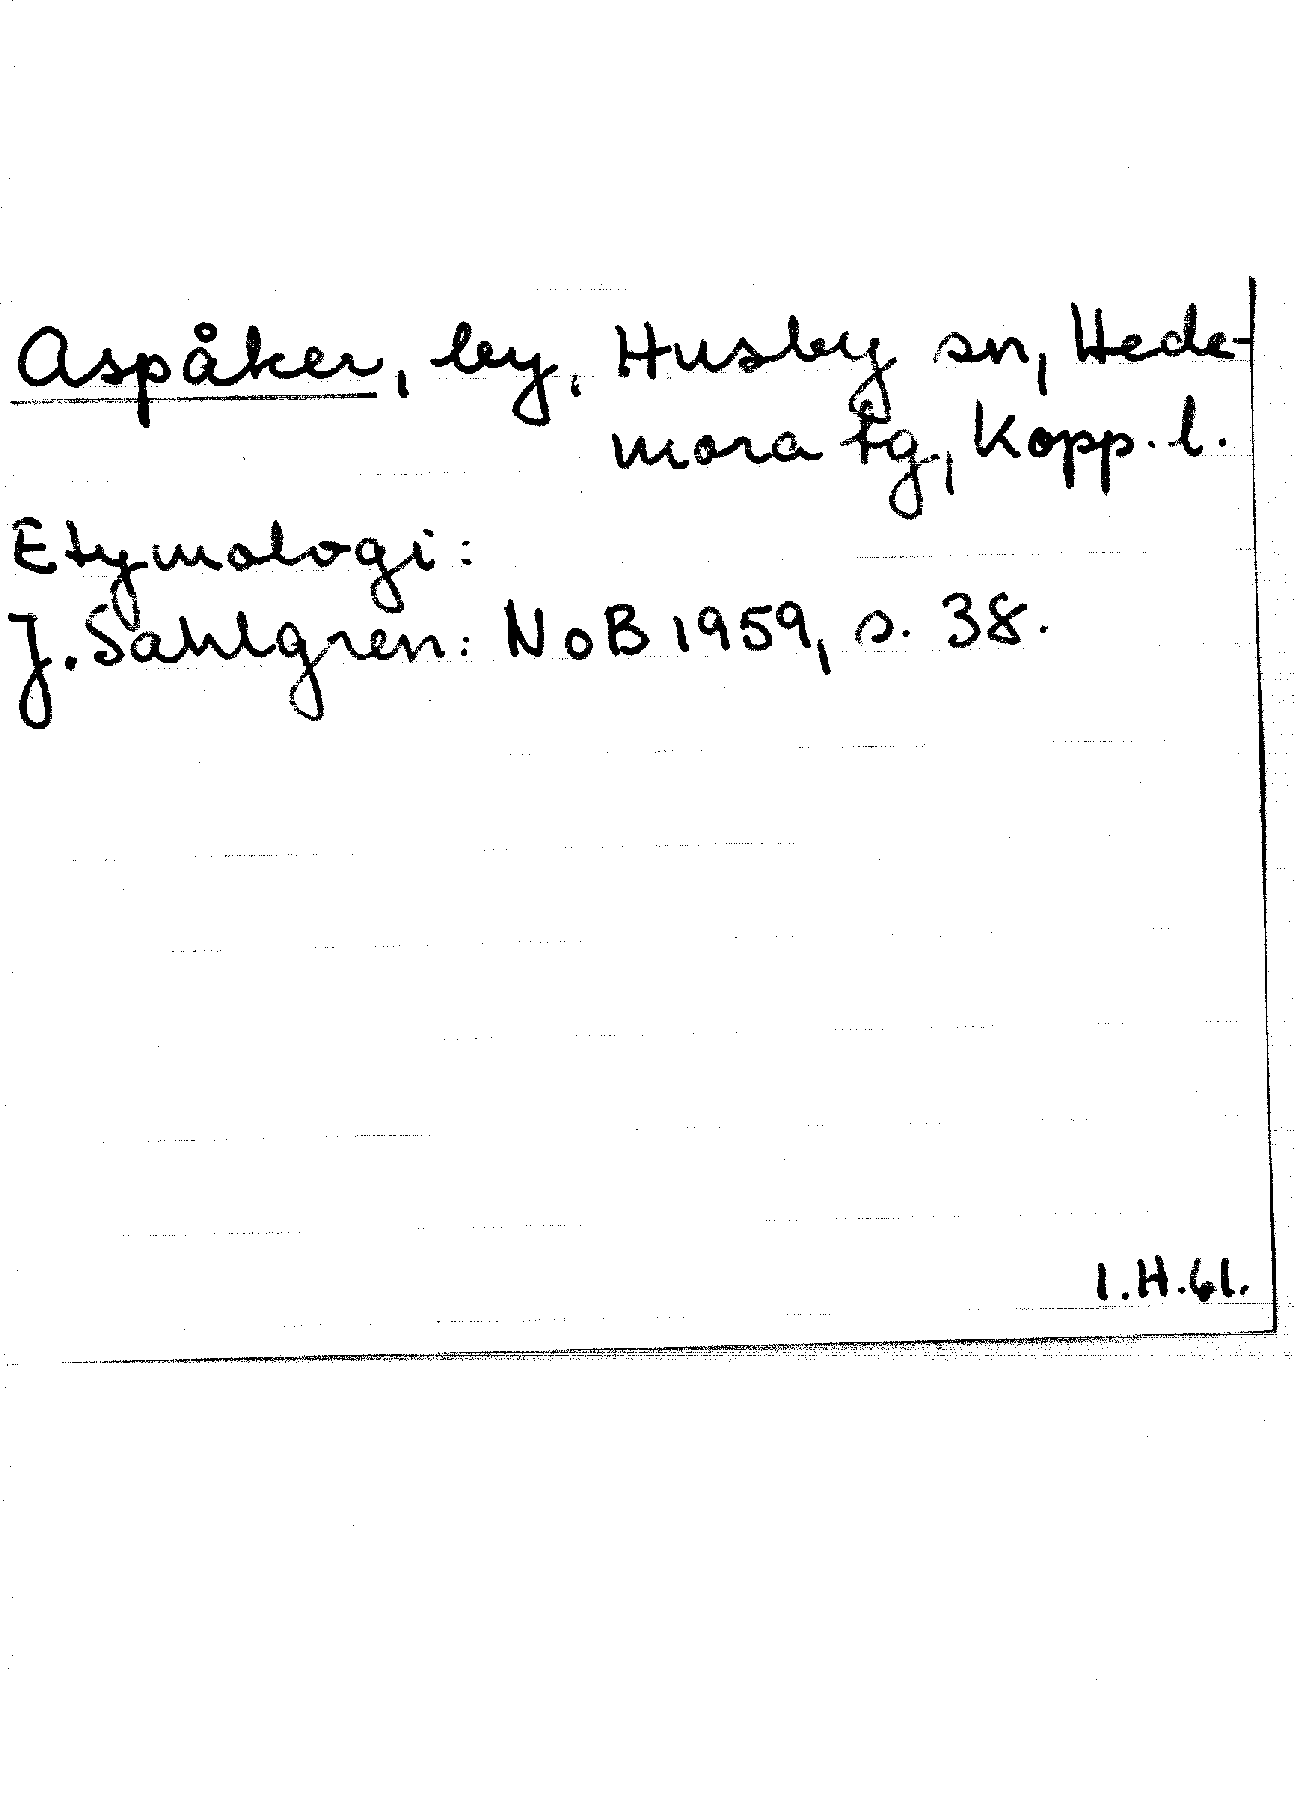 Aspåker, by, Husby sn, Hede-
mora tg, Kopp. l.
Etymologi:
J. Sahlgren: NoB 1959, s. 38.
I.H.61.